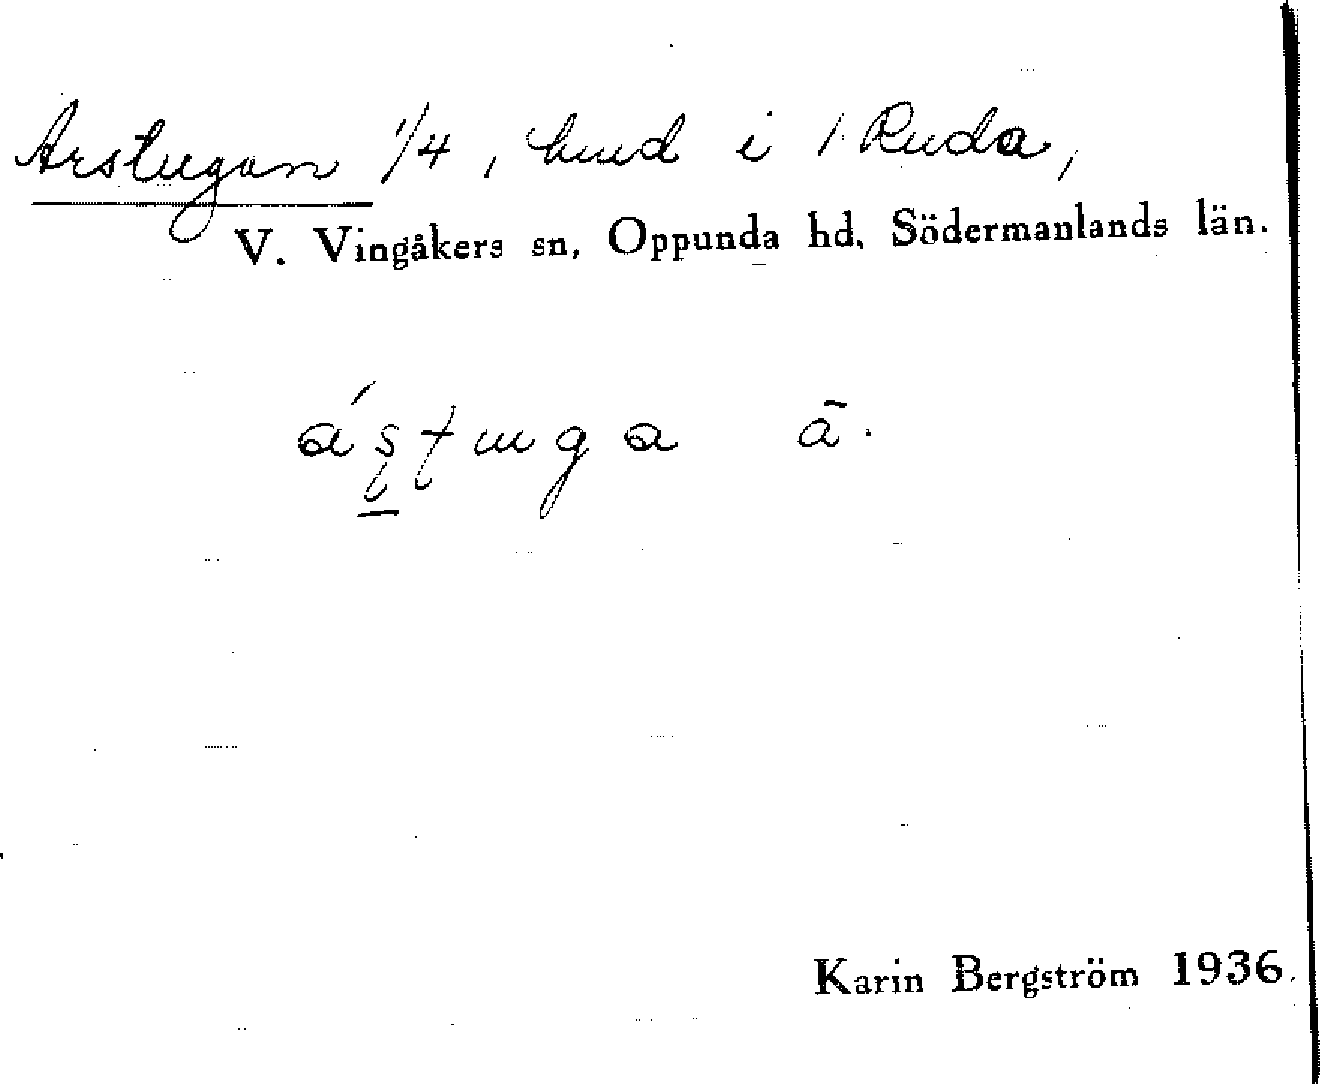 Arstugan 1/4, hmd i 1 Ruda,
V. Vingåkers sn, Oppunda hd, Södermanlands län.
ā.
Karin Bergström 1936.